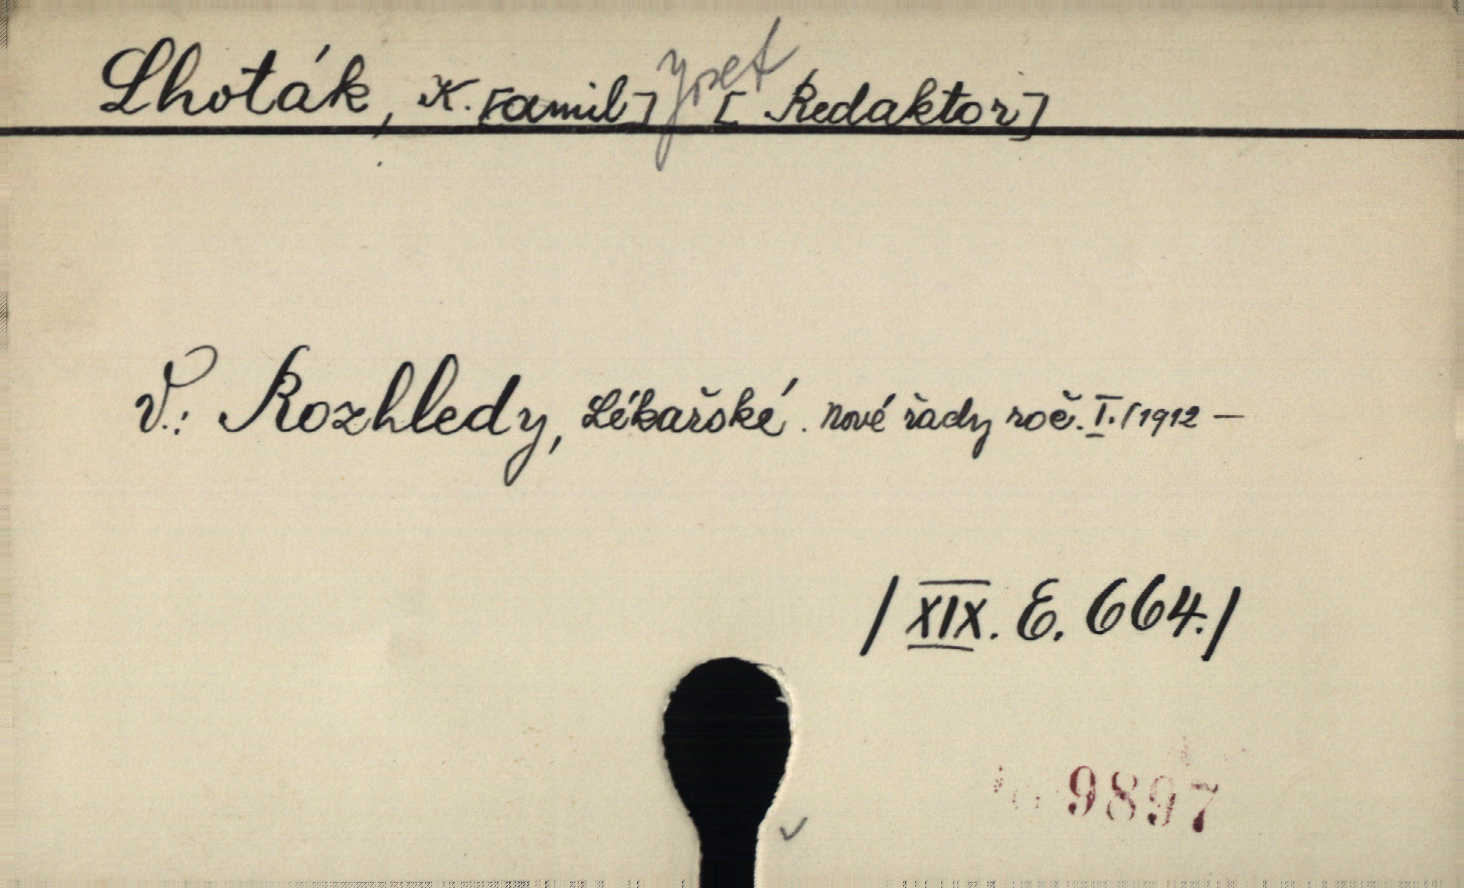 Lhoták, K.[amil] Josef [Redaktor]
V.: Rozhledy, Lékařské. Nové řady roč. I./1912 —
/XIX. E. 664./
9897